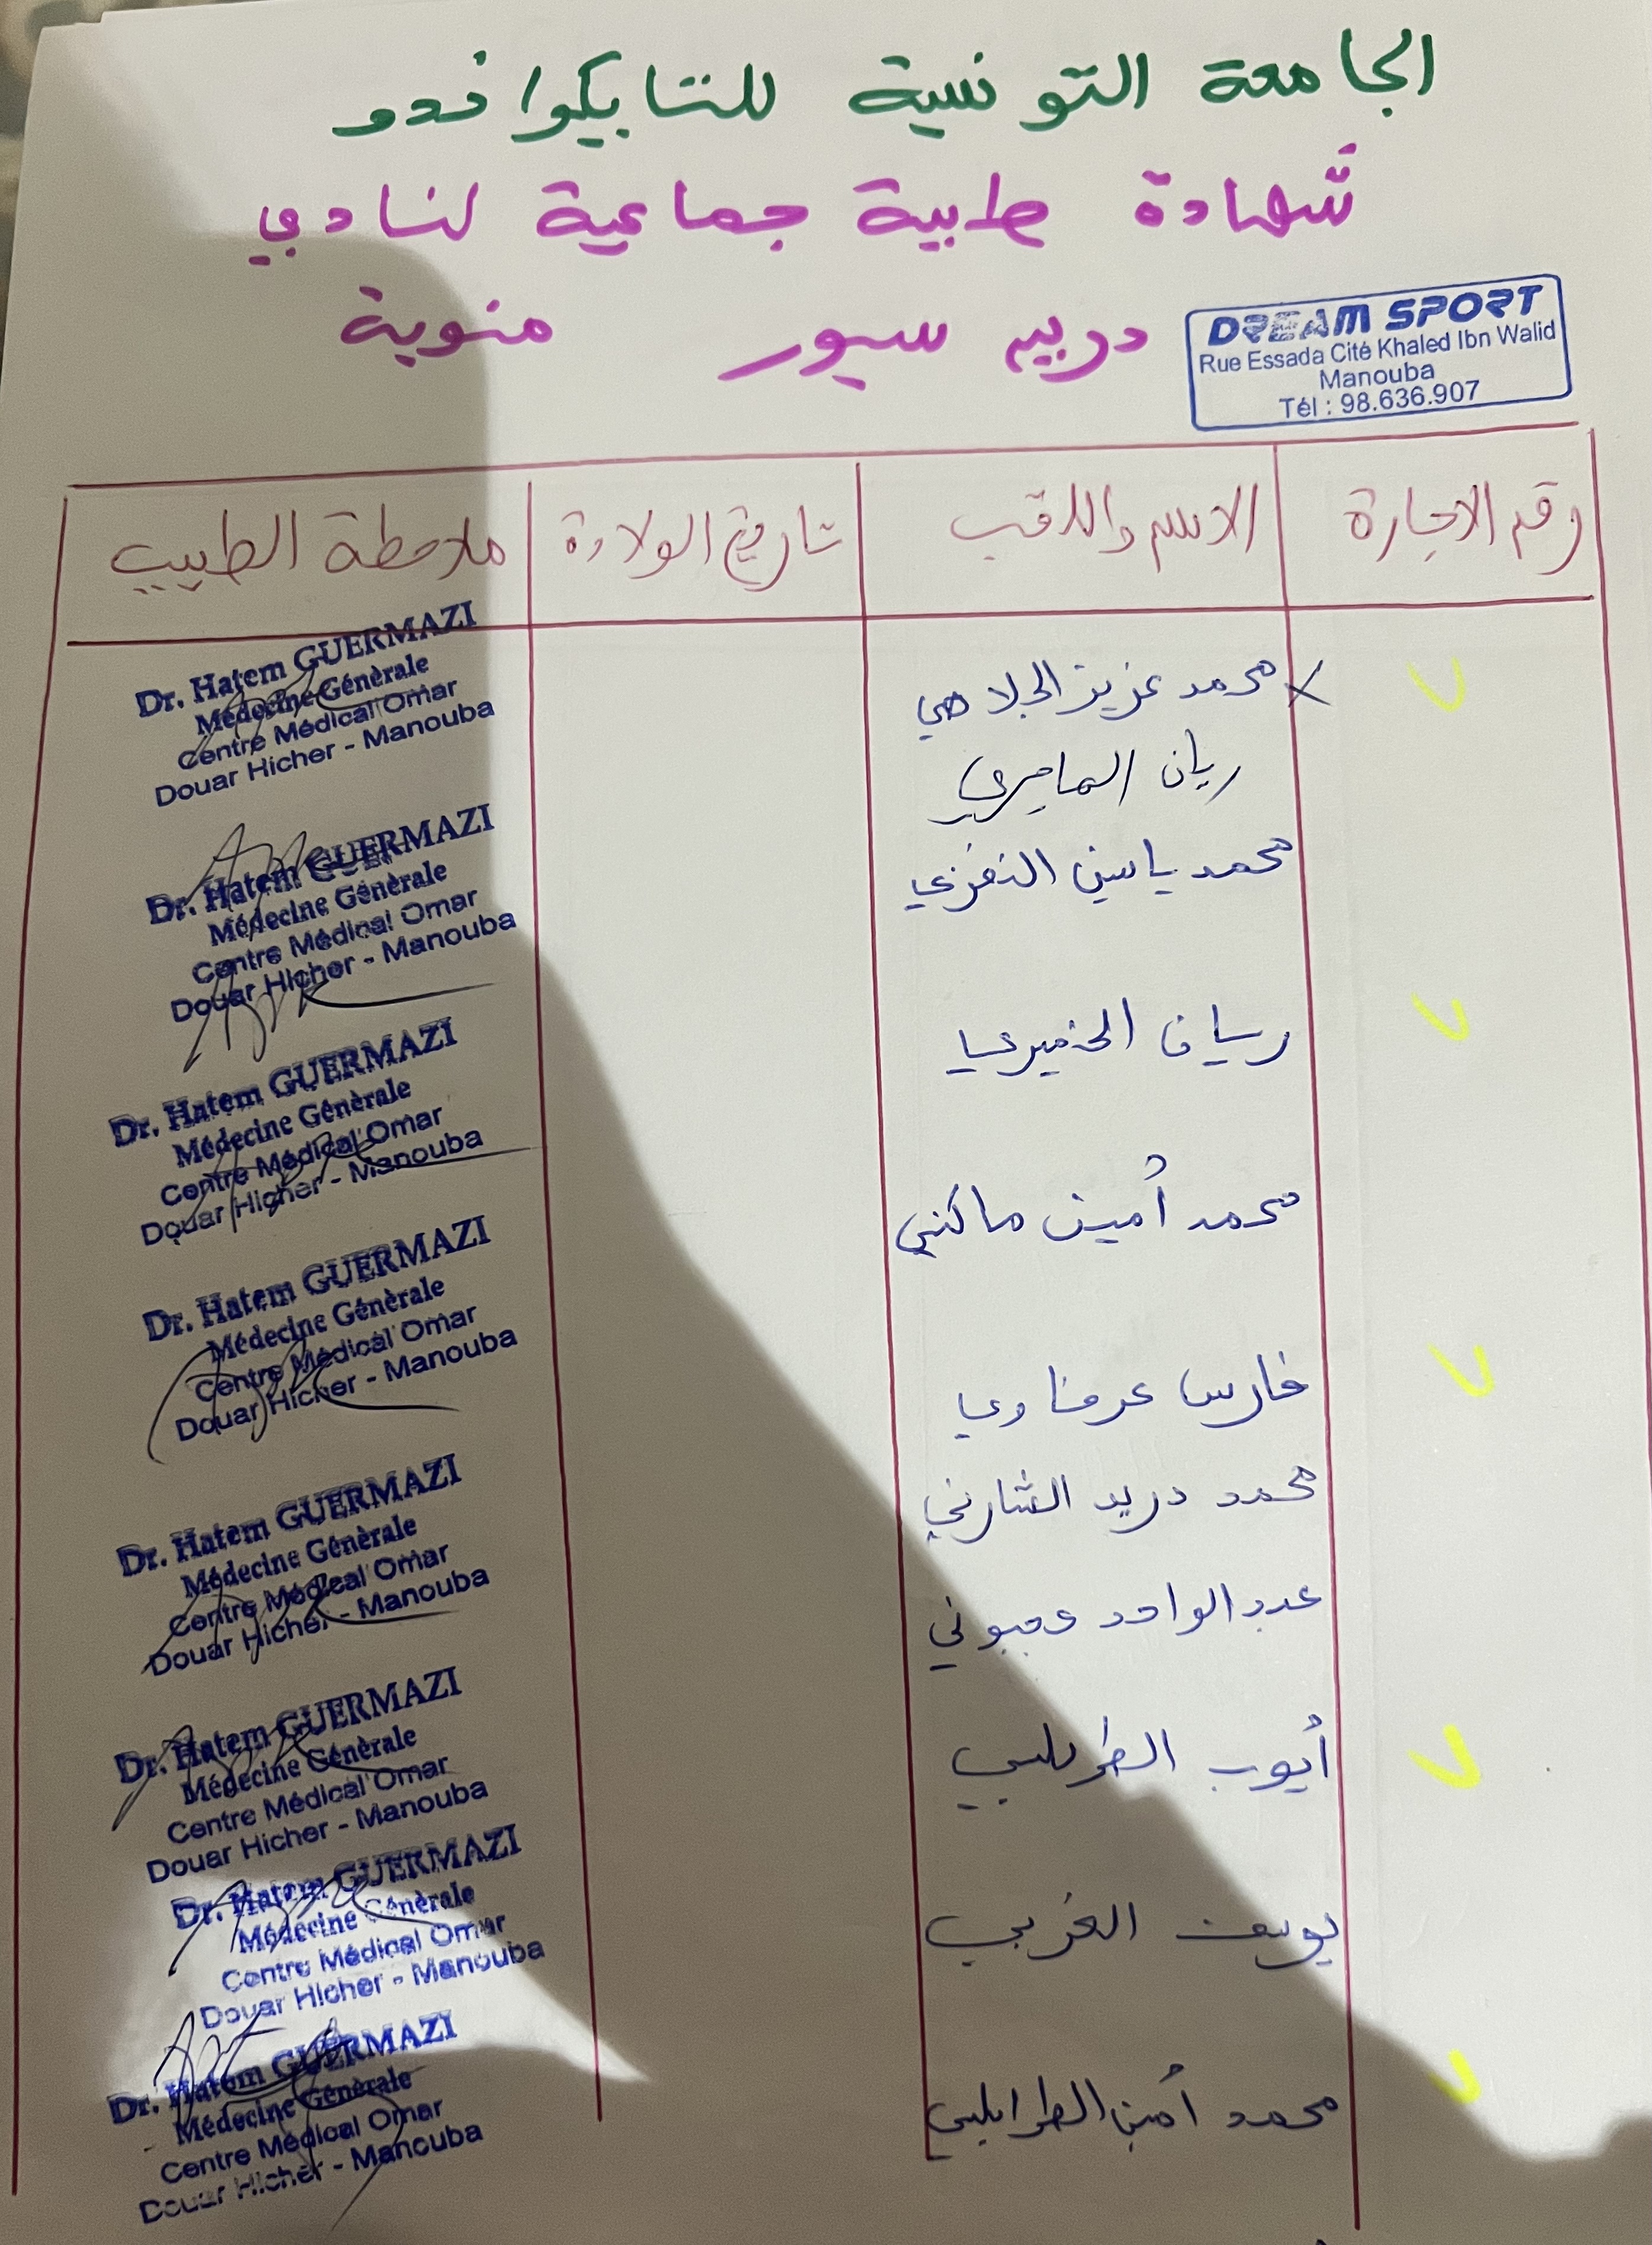 الجامعة التونسية للتايكواندو
شهادة طبية جماعية لنادي
دريم سبور منوبة
DREAM SPORT
Rue Essada Cité Khaled Ibn Walid
Manouba
Tél : 98.636.907
رقم الاجازة الاسم واللقب تاريخ الولادة ملاحظة الطبيب
محمد عزيز الجلاصي
Dr. Hatem GUERMAZI
Médecine Générale
Centre Médical Omar
Douar Hicher - Manouba
ريان
محمد ياسين النفزي
Dr. Hatem GUERMAZI
Médecine Générale
Centre Médical Omar
Douar Hicher - Manouba
ريان الخميري
Dr. Hatem GUERMAZI
Médecine Générale
Centre Médical Omar
Douar Hicher - Manouba
محمد أمين ماكني
Dr. Hatem GUERMAZI
Médecine Générale
Centre Médical Omar
Douar Hicher - Manouba
فارس عرفاوي
محمد دريد الشارني
Dr. Hatem GUERMAZI
Médecine Générale
Centre Médical Omar
Douar Hicher - Manouba
عبد الواحد
أيوب الطرابلسي
Dr. Hatem GUERMAZI
Médecine Générale
Centre Médical Omar
Douar Hicher - Manouba
يوسف الغربي
Dr. Hatem GUERMAZI
Médecine Générale
Centre Médical Omar
Douar Hicher - Manouba
محمد أمين الطرابلسي
Dr. Hatem GUERMAZI
Médecine Générale
Centre Médical Omar
Douar Hicher - Manouba